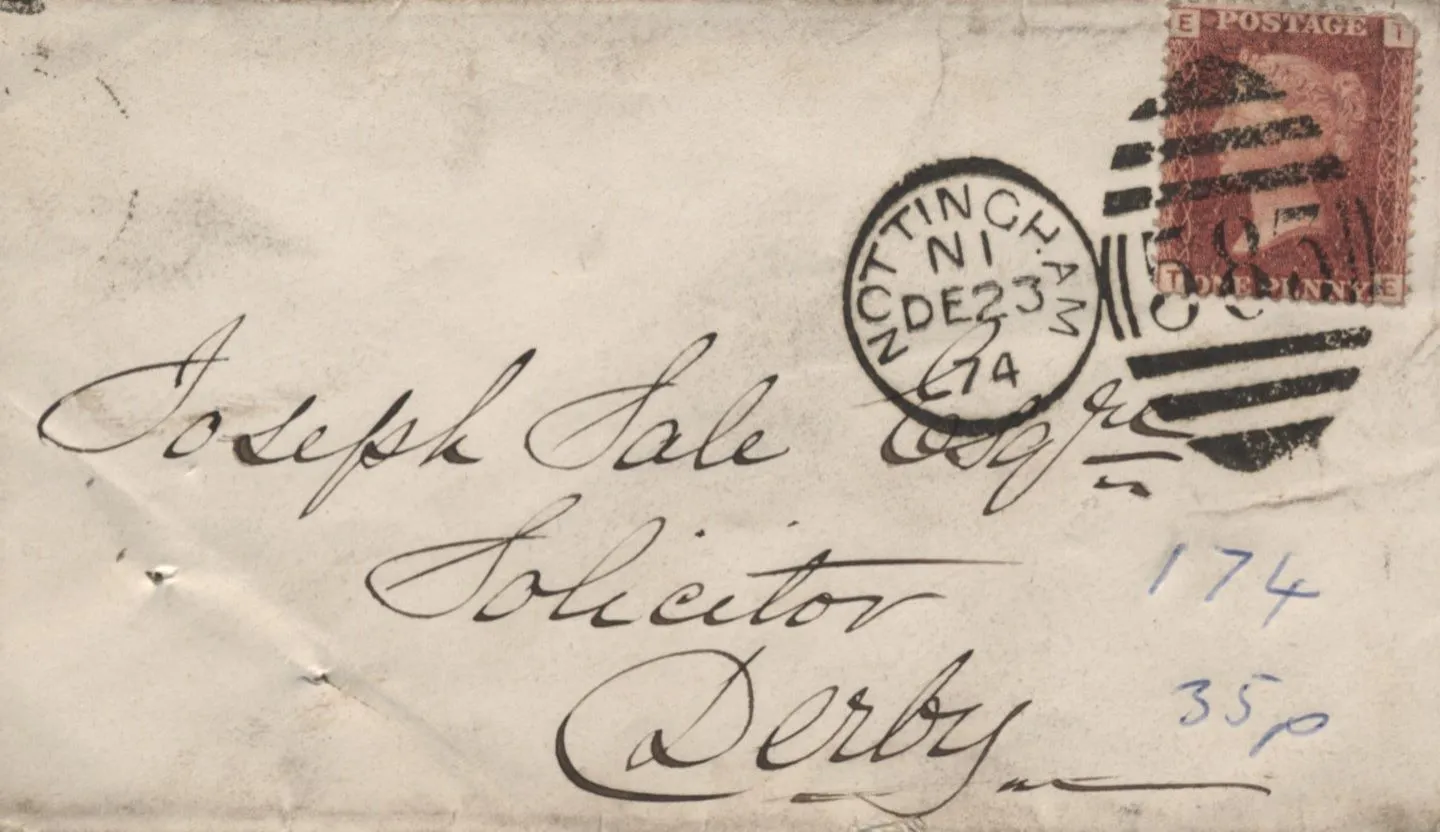 E POSTAGE T
T ONE PENNY E
585
NOTTINGHAM
N1
DE23
74
Joseph Sale Esqre
Solicitor
Derby
174
35p